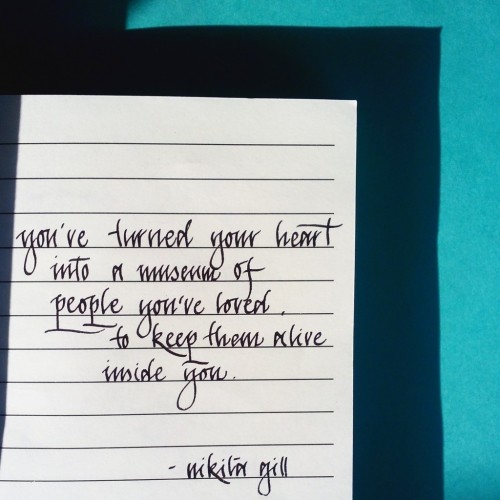 you've turned your heart
into a museum of
people you've loved.
to keep them alive
inside you.
- nikita gill